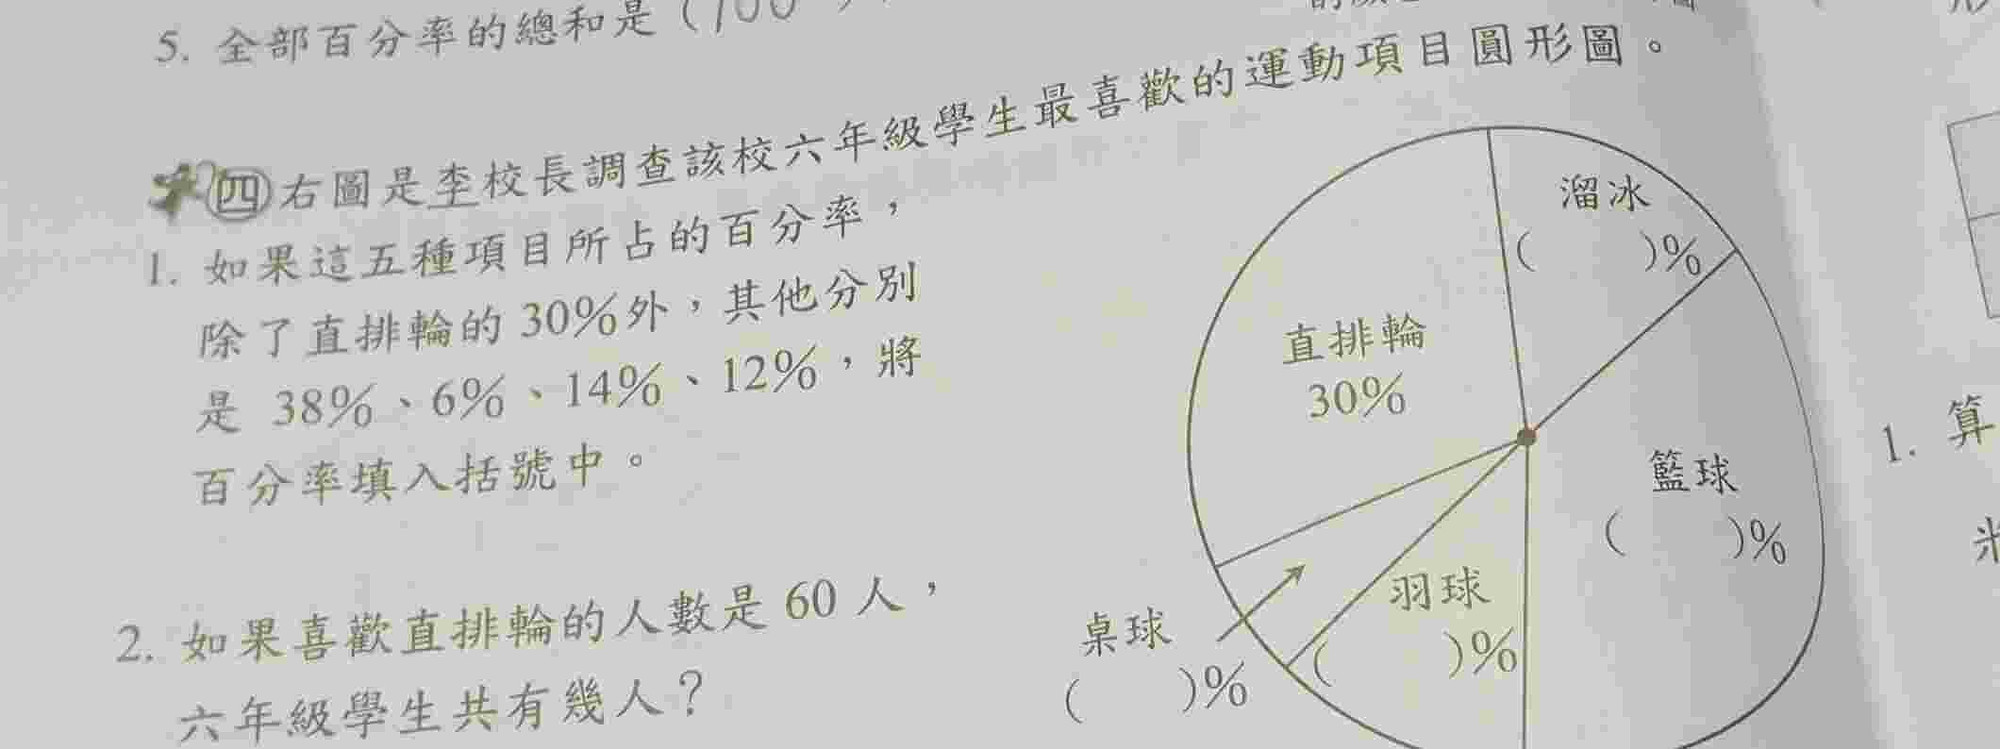 5. 全部百分率的總和是(100
四 右圖是李校長調查該校六年級學生最喜歡的運動項目圓形圖。
1. 如果這五種項目所占的百分率,
除了直排輪的30%外,其他分別
是 38%、6%、14%、12%,將
百分率填入括號中。
2. 如果喜歡直排輪的人數是60人,
六年級學生共有幾人?
溜冰
( )%
直排輪
30%
籃球
( )%
羽球
( )%
桌球
( )%
1. 算